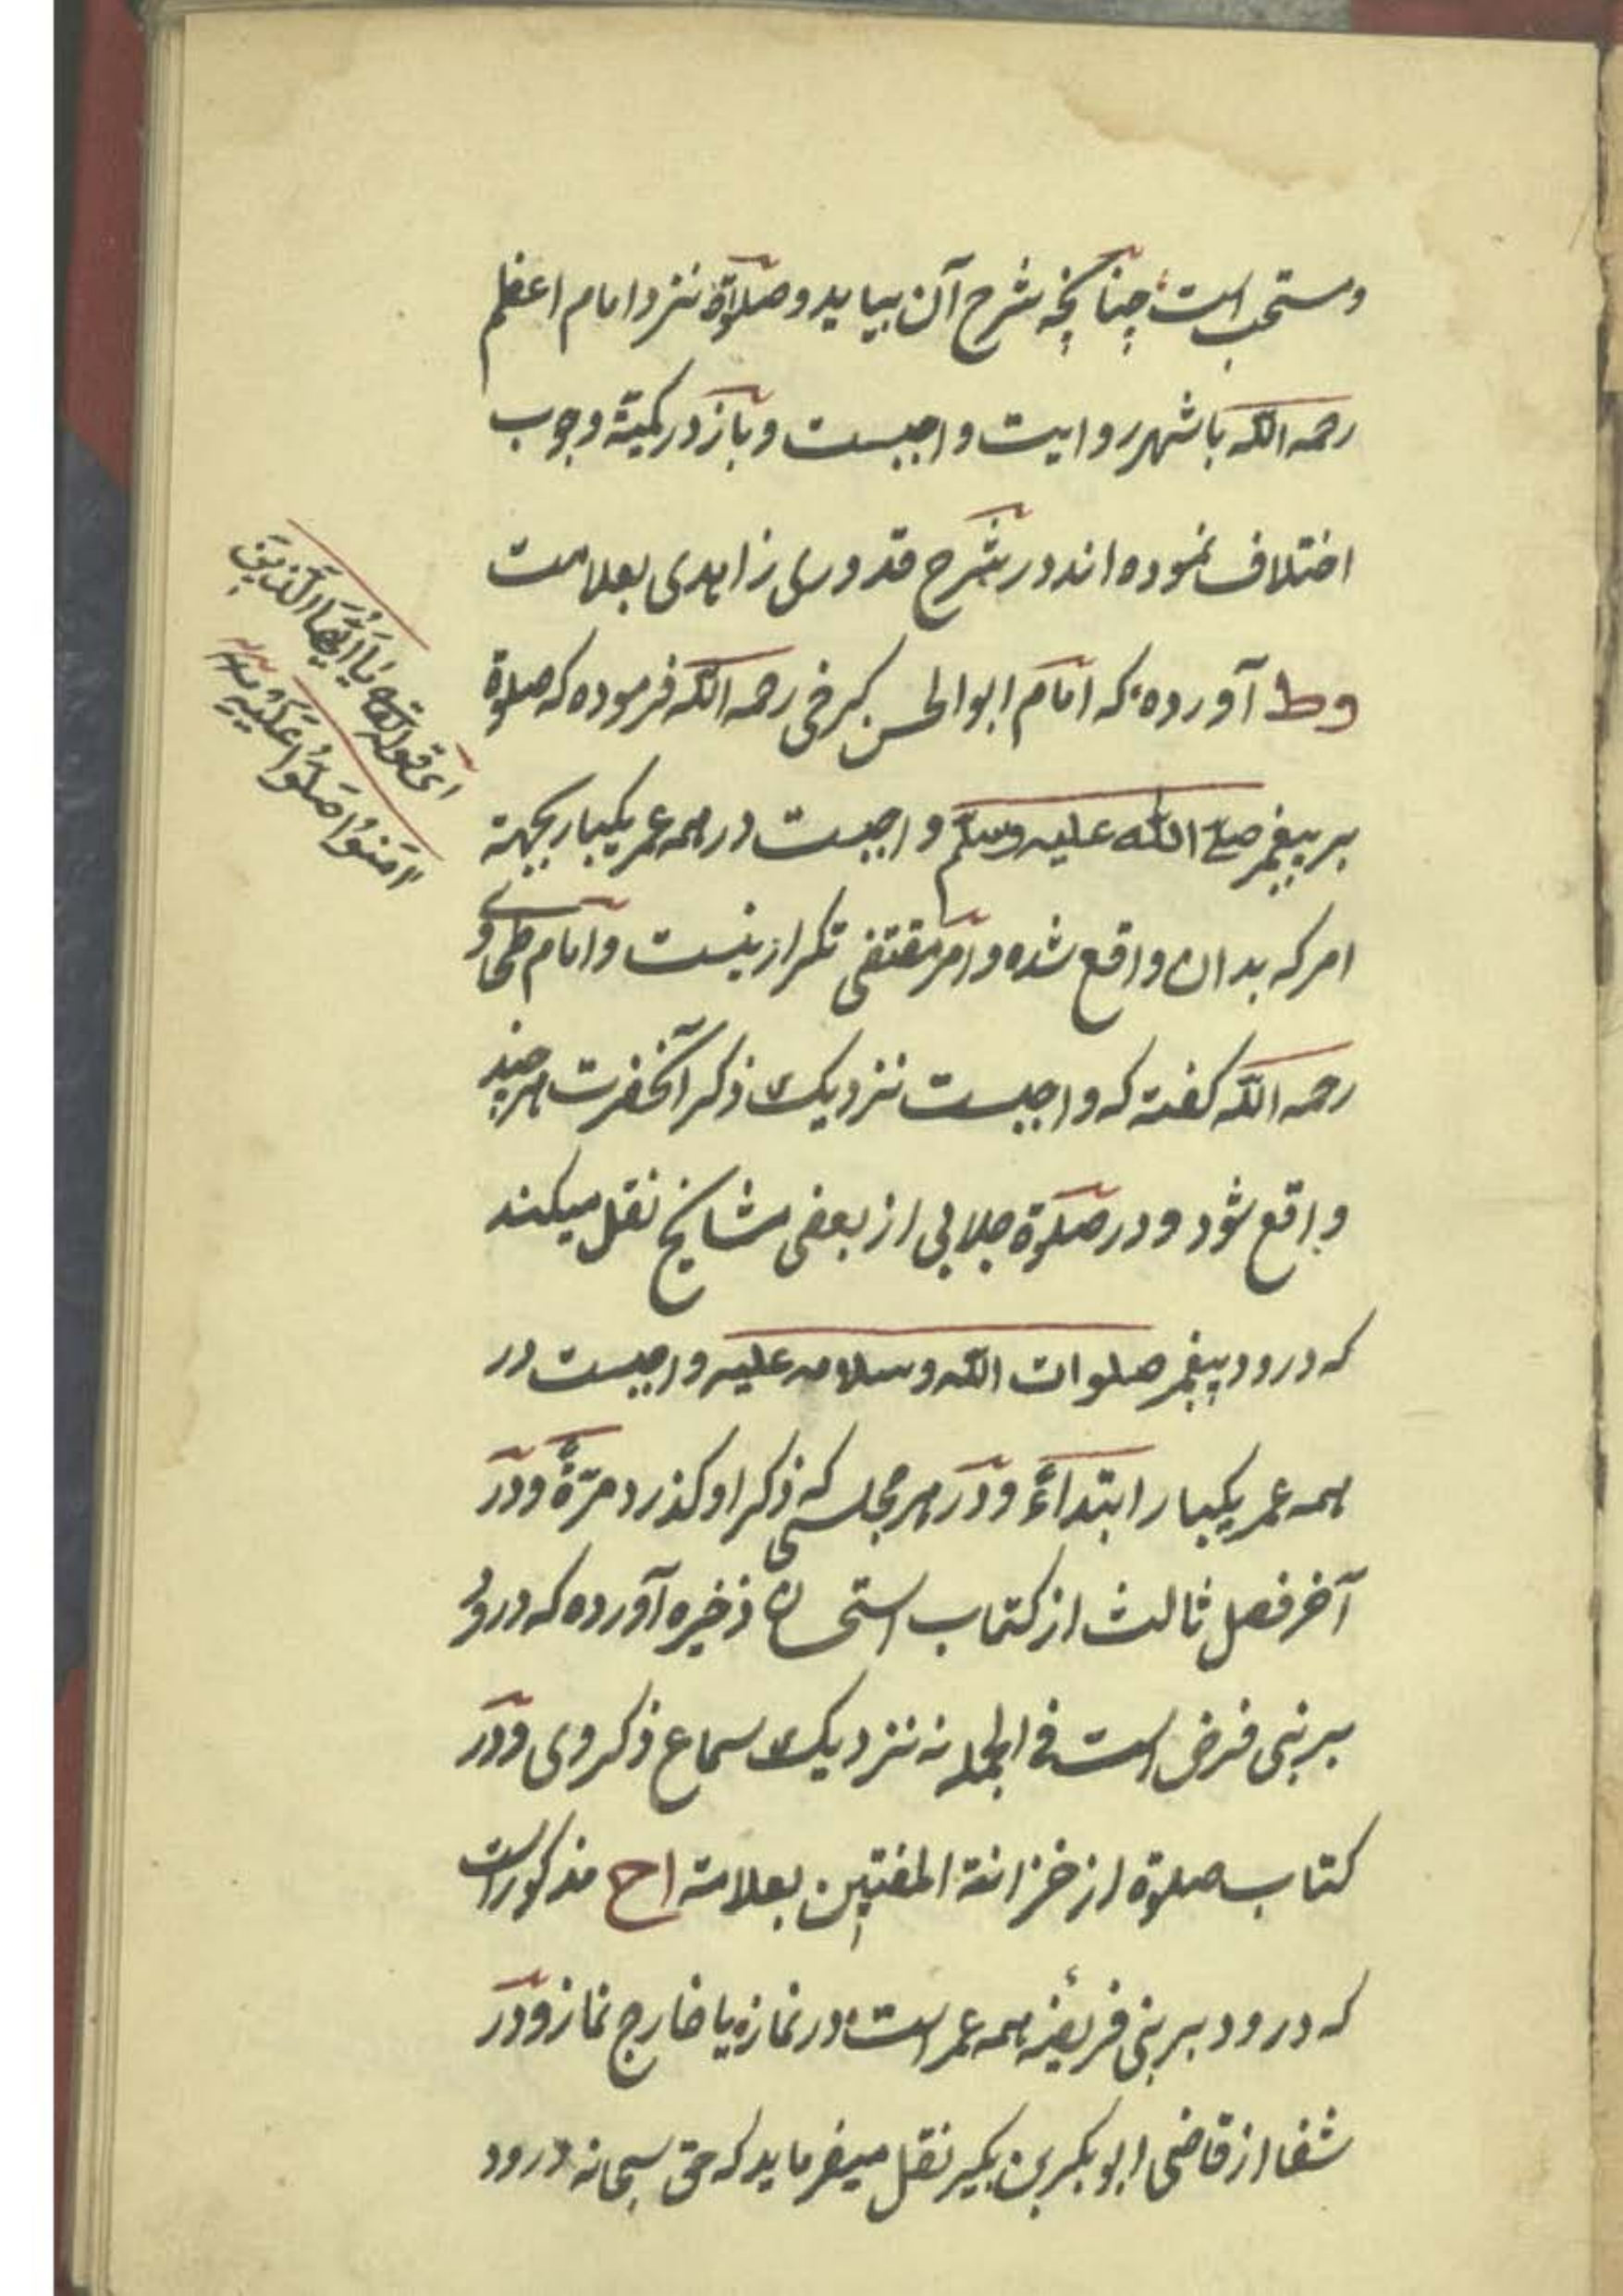 ومستحب است چنانچه شرح آن بیاید وصلوٰة نزد امام اعظم
رحمه الله باشهر روایت واجبست وباز در کمیّة وجوب
اختلاف نموده اند در شرح قدوری زاهدی بعلامت
وط آورده که امام ابوالحسن کرخی رحمه الله فرموده که صلوة
بر پیغمبر صلى الله عليه وسلم واجبست در همه عمر یکبار بجهة
امر که بدان واقع شده وامر مقتضی تکرار نیست وامام طحاوی
رحمه الله کفته که واجبست نزدیک ذکر آنحضرت هرچند
واقع شود ودر صلوة جلابی از بعضی مشایخ نقل میکند
که درود پیغمبر صلوات الله وسلامه علیه واجبست در
همه عمر یکبار ابتداءً ودر هر مجلسی که ذکر او کذرد مرّةً ودر
آخر فصل ثالث از کتاب استحسان ذخیره آورده که درود
بر نبی فرض است فی الجمله نه نزدیک سماع ذکر وی ودر
کتاب صلوة از خزانة المفتین بعلامة اح مذکور است
که درود بر نبی فریضهٔ همه عمر است در نماز یا خارج نماز ودر
شفا از قاضی ابو بکر بن بکیر نقل میفرماید که حق سبحانه درود
ای قوله تعه يَا اَيُّهَا الَّذِينَ
اٰمَنُوا صَلُّوا عَلَيْهِ